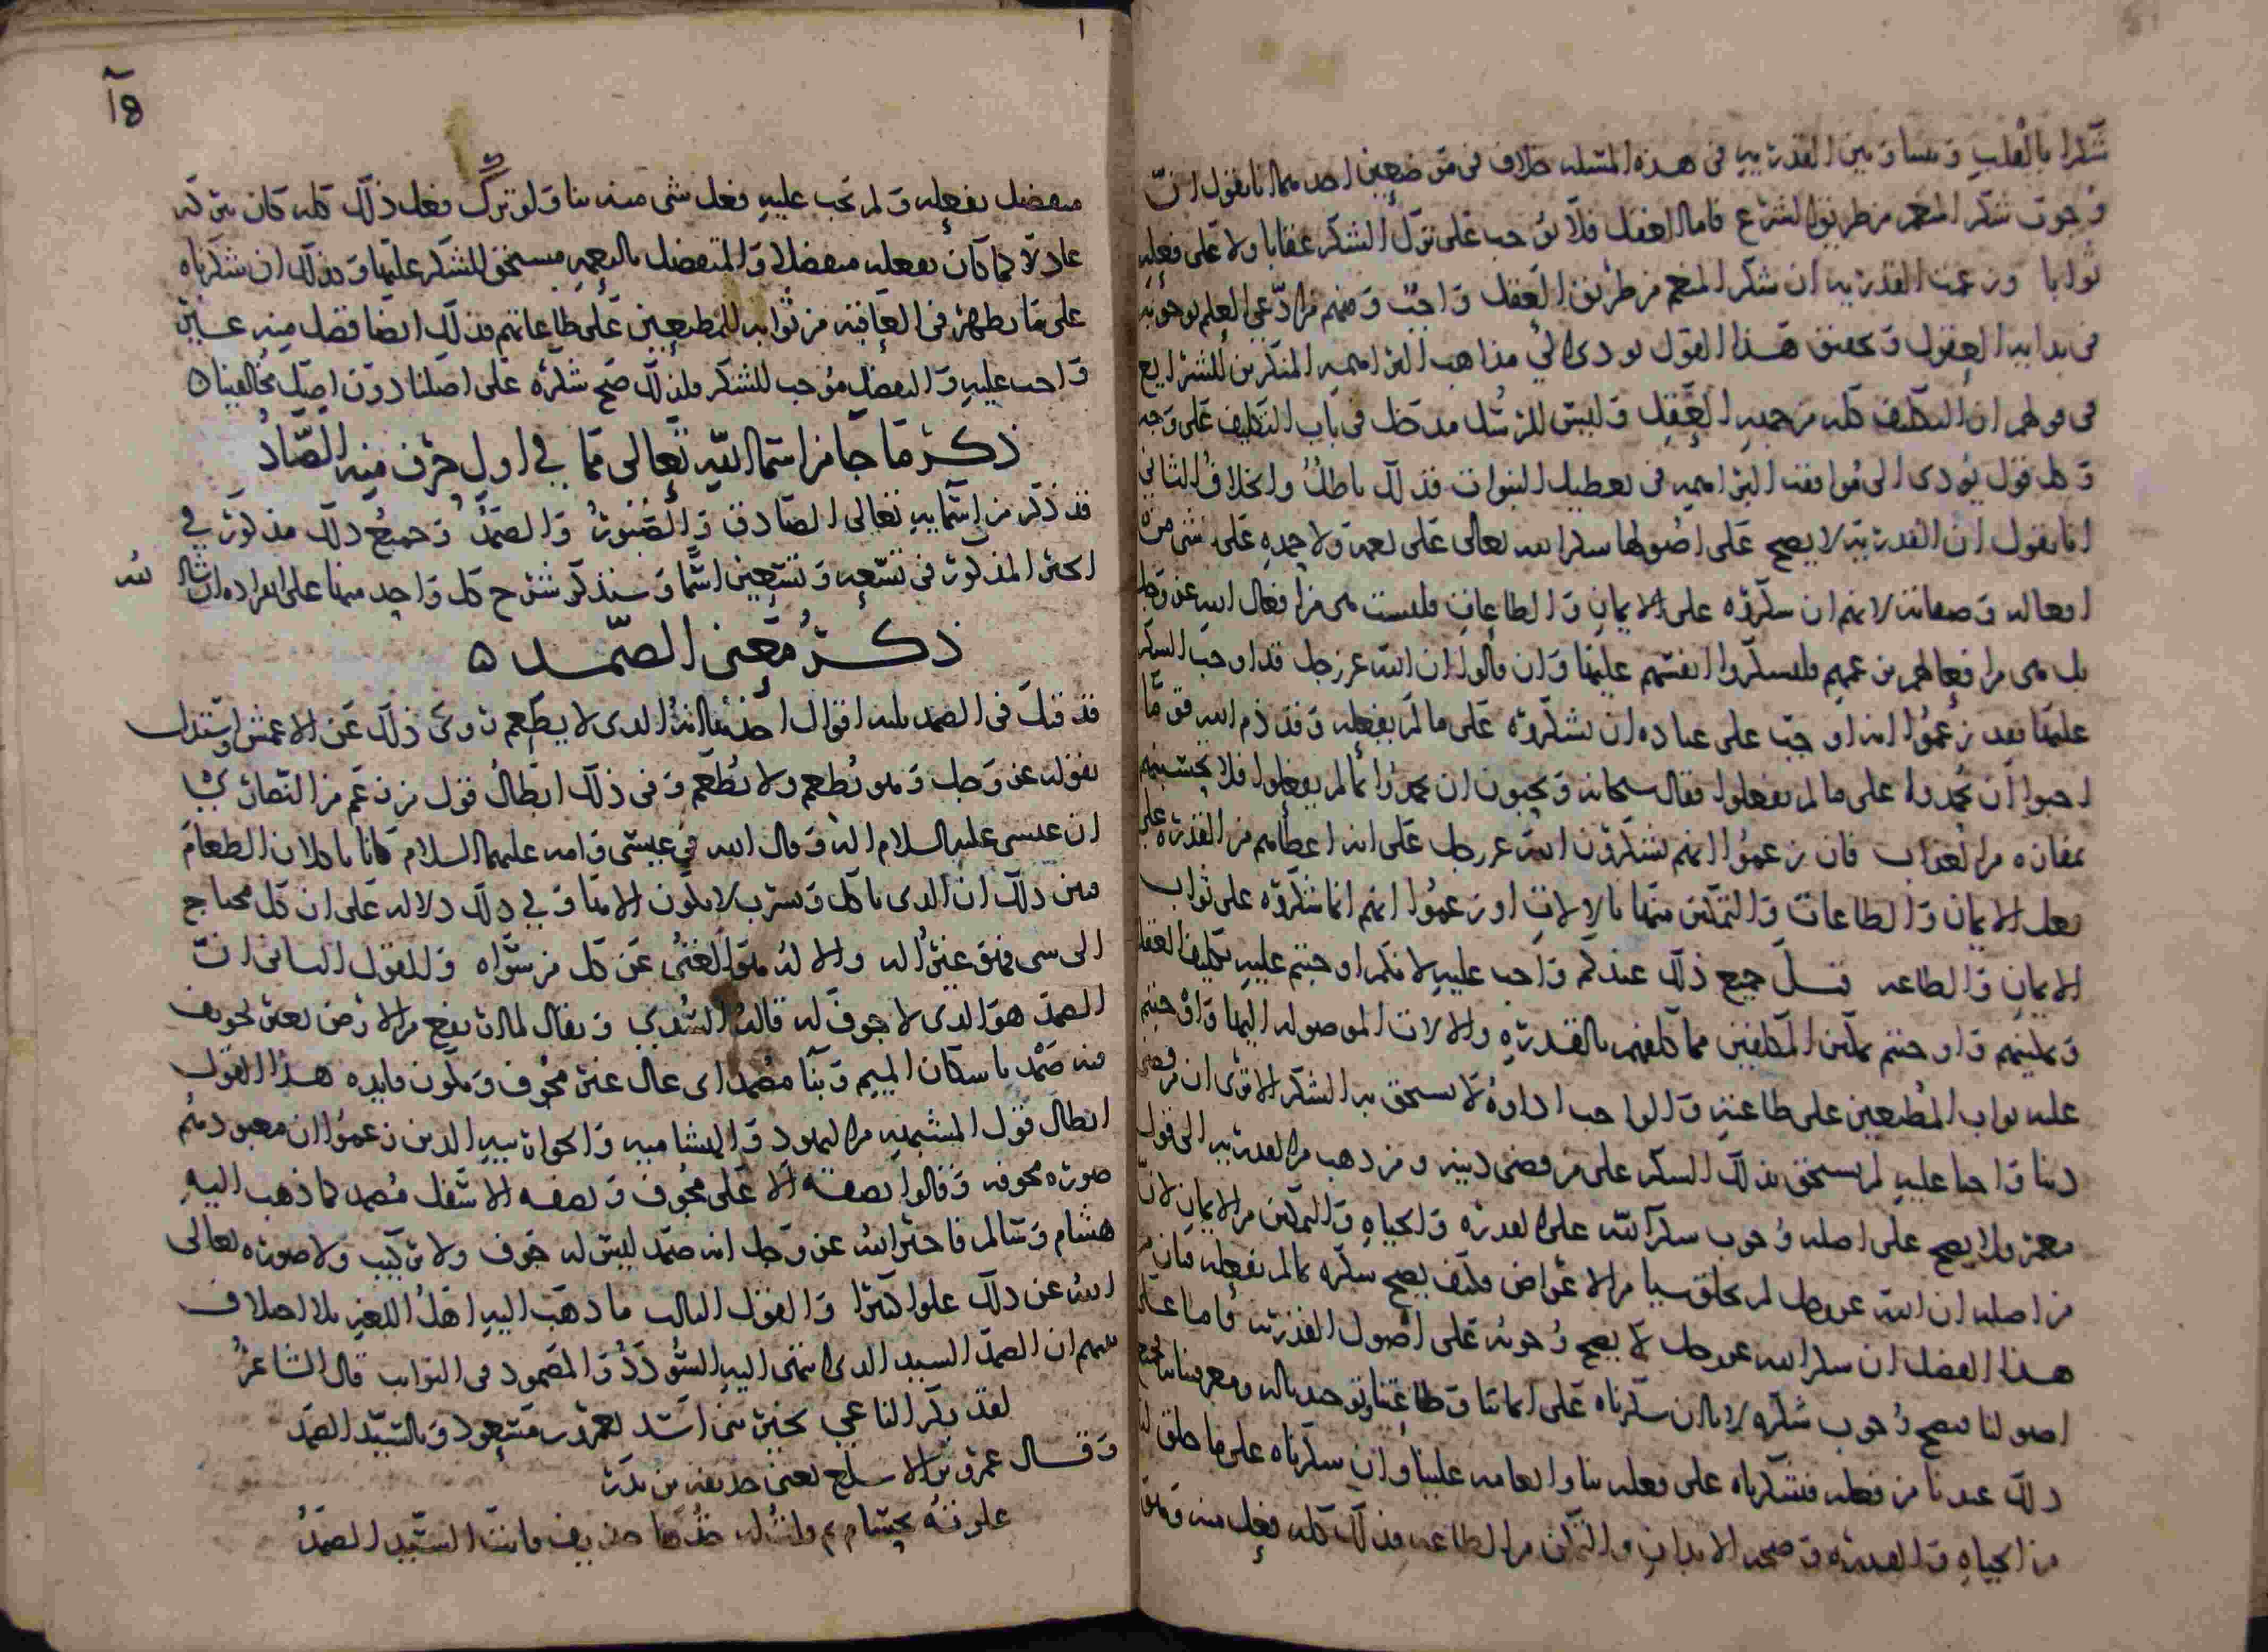 شكرا بالقلب وبيننا وبين القدرية فى هذه المسئلة خلاف فى موضعين احدهما انا نقول ان
وجوب شكر المنعم من طريق الشرع فاما العقل فلا يوجب على ترك الشكر عقابا ولا على فعله
ثوابا وزعمت القدرية ان شكر المنعم من طريق العقل واجب ومنهم من ادعى العلم بوجوبه
فى بداية العقول وتحقيق هذا القول يودى الى مذاهب البراهمة المنكرين للشرايع
فى قولهم ان التكليف كله من جهة العقل وليس للرسل مدخل فى باب التكليف على وجه
وكل قول يودى الى موافقة البراهمة فى تعطيل النبوات فذلك باطل والخلاف الثانى
انا نقول ان القدرية لا يصح على اصولها شكر الله تعالى على نعمه ولا حمده على شى من
افعاله وصفاته لانهم ان شكروه على الايمان والطاعات فليست هى من افعال الله عز وجل
بل هى من افعالهم بزعمهم فليشكروا انفسهم عليها وان قالوا ان الله عز وجل قد اوجب الشكر
عليها فقد زعموا انه اوجب على عباده ان يشكروه على ما لم يفعله وقد ذم الله قوما
احبوا ان يحمدوا على ما لم يفعلوا فقال سبحانه ويحبون ان يحمدوا بما لم يفعلوا فلا تحسبنهم
بمفازة من العذاب فان زعموا انهم يشكرون الله عز وجل على انه اعطاهم من القدرة على
فعل الايمان والطاعات والتمكين منها بالالات او زعموا انهم انما شكروه على ثواب
الايمان والطاعة قيل جميع ذلك عندكم واجب عليه لانكم اوجبتم عليه تكليف العقلا
وتمكينهم واوجبتم تمكين المكلفين مما كلفهم بالقدرة والالات الموصولة اليها واوجبتم
عليه ثواب المطيعين على طاعته والواجب اداوه لا يستحق به الشكر الا ترى ان من قضى
دينا واجبا عليه لم يستحق بذلك الشكر على من قضى دينه ومن ذهب من القدرية الى قول
معمر فلا يصح على اصله وجوب شكر الله على القدرة والحياة والتمكين من الايمان لان
من اصله ان الله عز وجل لم يخلق شيا من الاعراض فكيف يصح شكره بما لم يفعله فبان
هذا الفصل ان شكر الله عز وجل لا يصح وجوبه على اصول القدرية فاما على
اصولنا فيصح وجوب شكره لانا ان شكرناه على ايماننا وطاعتنا وتوحيدنا له ومعرفتنا
ذلك عندنا من فعله فشكرناه على فعله بنا وانعامه علينا وان شكرناه على ما خلق
من الحياة والقدرة وصحة الابدان والتمكن من الطاعة فذلك كله فعل منه وهو
١٥
متفضل بفعله ولم يجب عليه فعل شى منه بنا ولو ترك فعل ذلك كله كان بتركه
عادلا كما كان بفعله متفضلا والمتفضل بالنعمة مستحق للشكر عليها وكذلك ان شكرناه
على ما يظهر فى العاقبة من ثوابه للمطيعين على طاعاتهم فذلك ايضا فضل منه غير
واجب عليه والتفضل موجب للشكر فلذلك صح شكره على اصلنا دون اصل مخالفينا ٥
ذكر ما جا من اسما الله تعالى مما فى اول حرف منه الصاد
قد ذكر من اسمايه تعالى الصادق والصبور والصمد وجميع ذلك مذكور فى
الخبر المذكور فى تسعة وتسعين اسما وسنذكر شرح كل واحد منها على انفراده ان شا الله
ذكر معنى الصمد ٥
قد قيل فى الصمد ثلثة اقوال احدها انه الذى لا يطعم روى ذلك عن الاعمش واستدل
بقوله عز وجل وهو يطعم ولا يطعم وفى ذلك ابطال قول من زعم من النصارى
ان عيسى عليه السلام اله وقال الله فى عيسى وامه عليهما السلام كانا ياكلان الطعام
فبين ذلك ان الذى ياكل ويشرب لا يكون الاها وفى ذلك دلالة على ان كل محتاج
الى شى فهو غير اله والاله هو الغنى عن كل من سواه والقول الثانى ان
الصمد هو الذى لا جوف له قاله السدى ويقال لما ارتفع من الارض بغير تجويف
منه صمد باسكان الميم وبنا مصمد اى عال غير مجوف ويكون فايدة هذا القول
ابطال قول المشبهة من اليهود والهشامية والجواربية الذين زعموا ان معبودهم
صورة مجوفة وقالوا نصفه الاعلى مجوف ونصفه الاسفل مصمد كما ذهب اليه
هشام وسالم فاخبر الله عز وجل انه صمد ليس له جوف ولا تركيب ولا صورة تعالى
الله عن ذلك علوا كبيرا والقول الثالث ما ذهب اليه اهل اللغة بلا اختلاف
بينهم ان الصمد السيد الذى انتهى اليه السودد والمصمود فى النوايب قال الشاعر
لقد بكر الناعى بخير بنى اسد بعمرو بن مسعود وبالسيد الصمد
وقال عمرو بن الاسلع يعنى حذيفة بن بدر
علوته بحسام ثم قلت له خذها حذيف فانت السيد الصمد